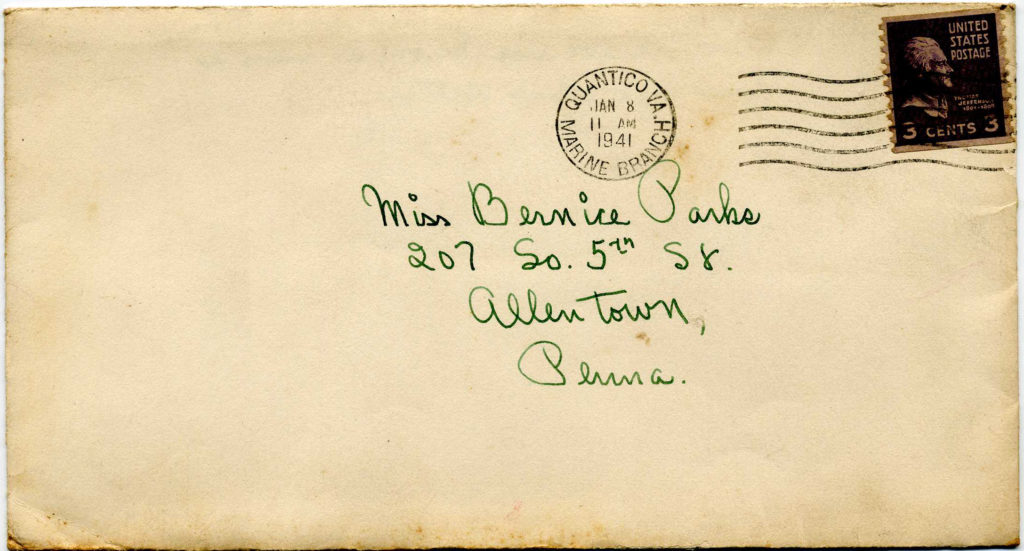 UNITED
STATES
POSTAGE
THOMAS
JEFFERSON
1801-1809
3 CENTS 3
QUANTICO VA.
JAN 8
11 AM
1941
MARINE BRANCH
Miss Bernice Parks
207 So. 5th St.
Allentown,
Penna.